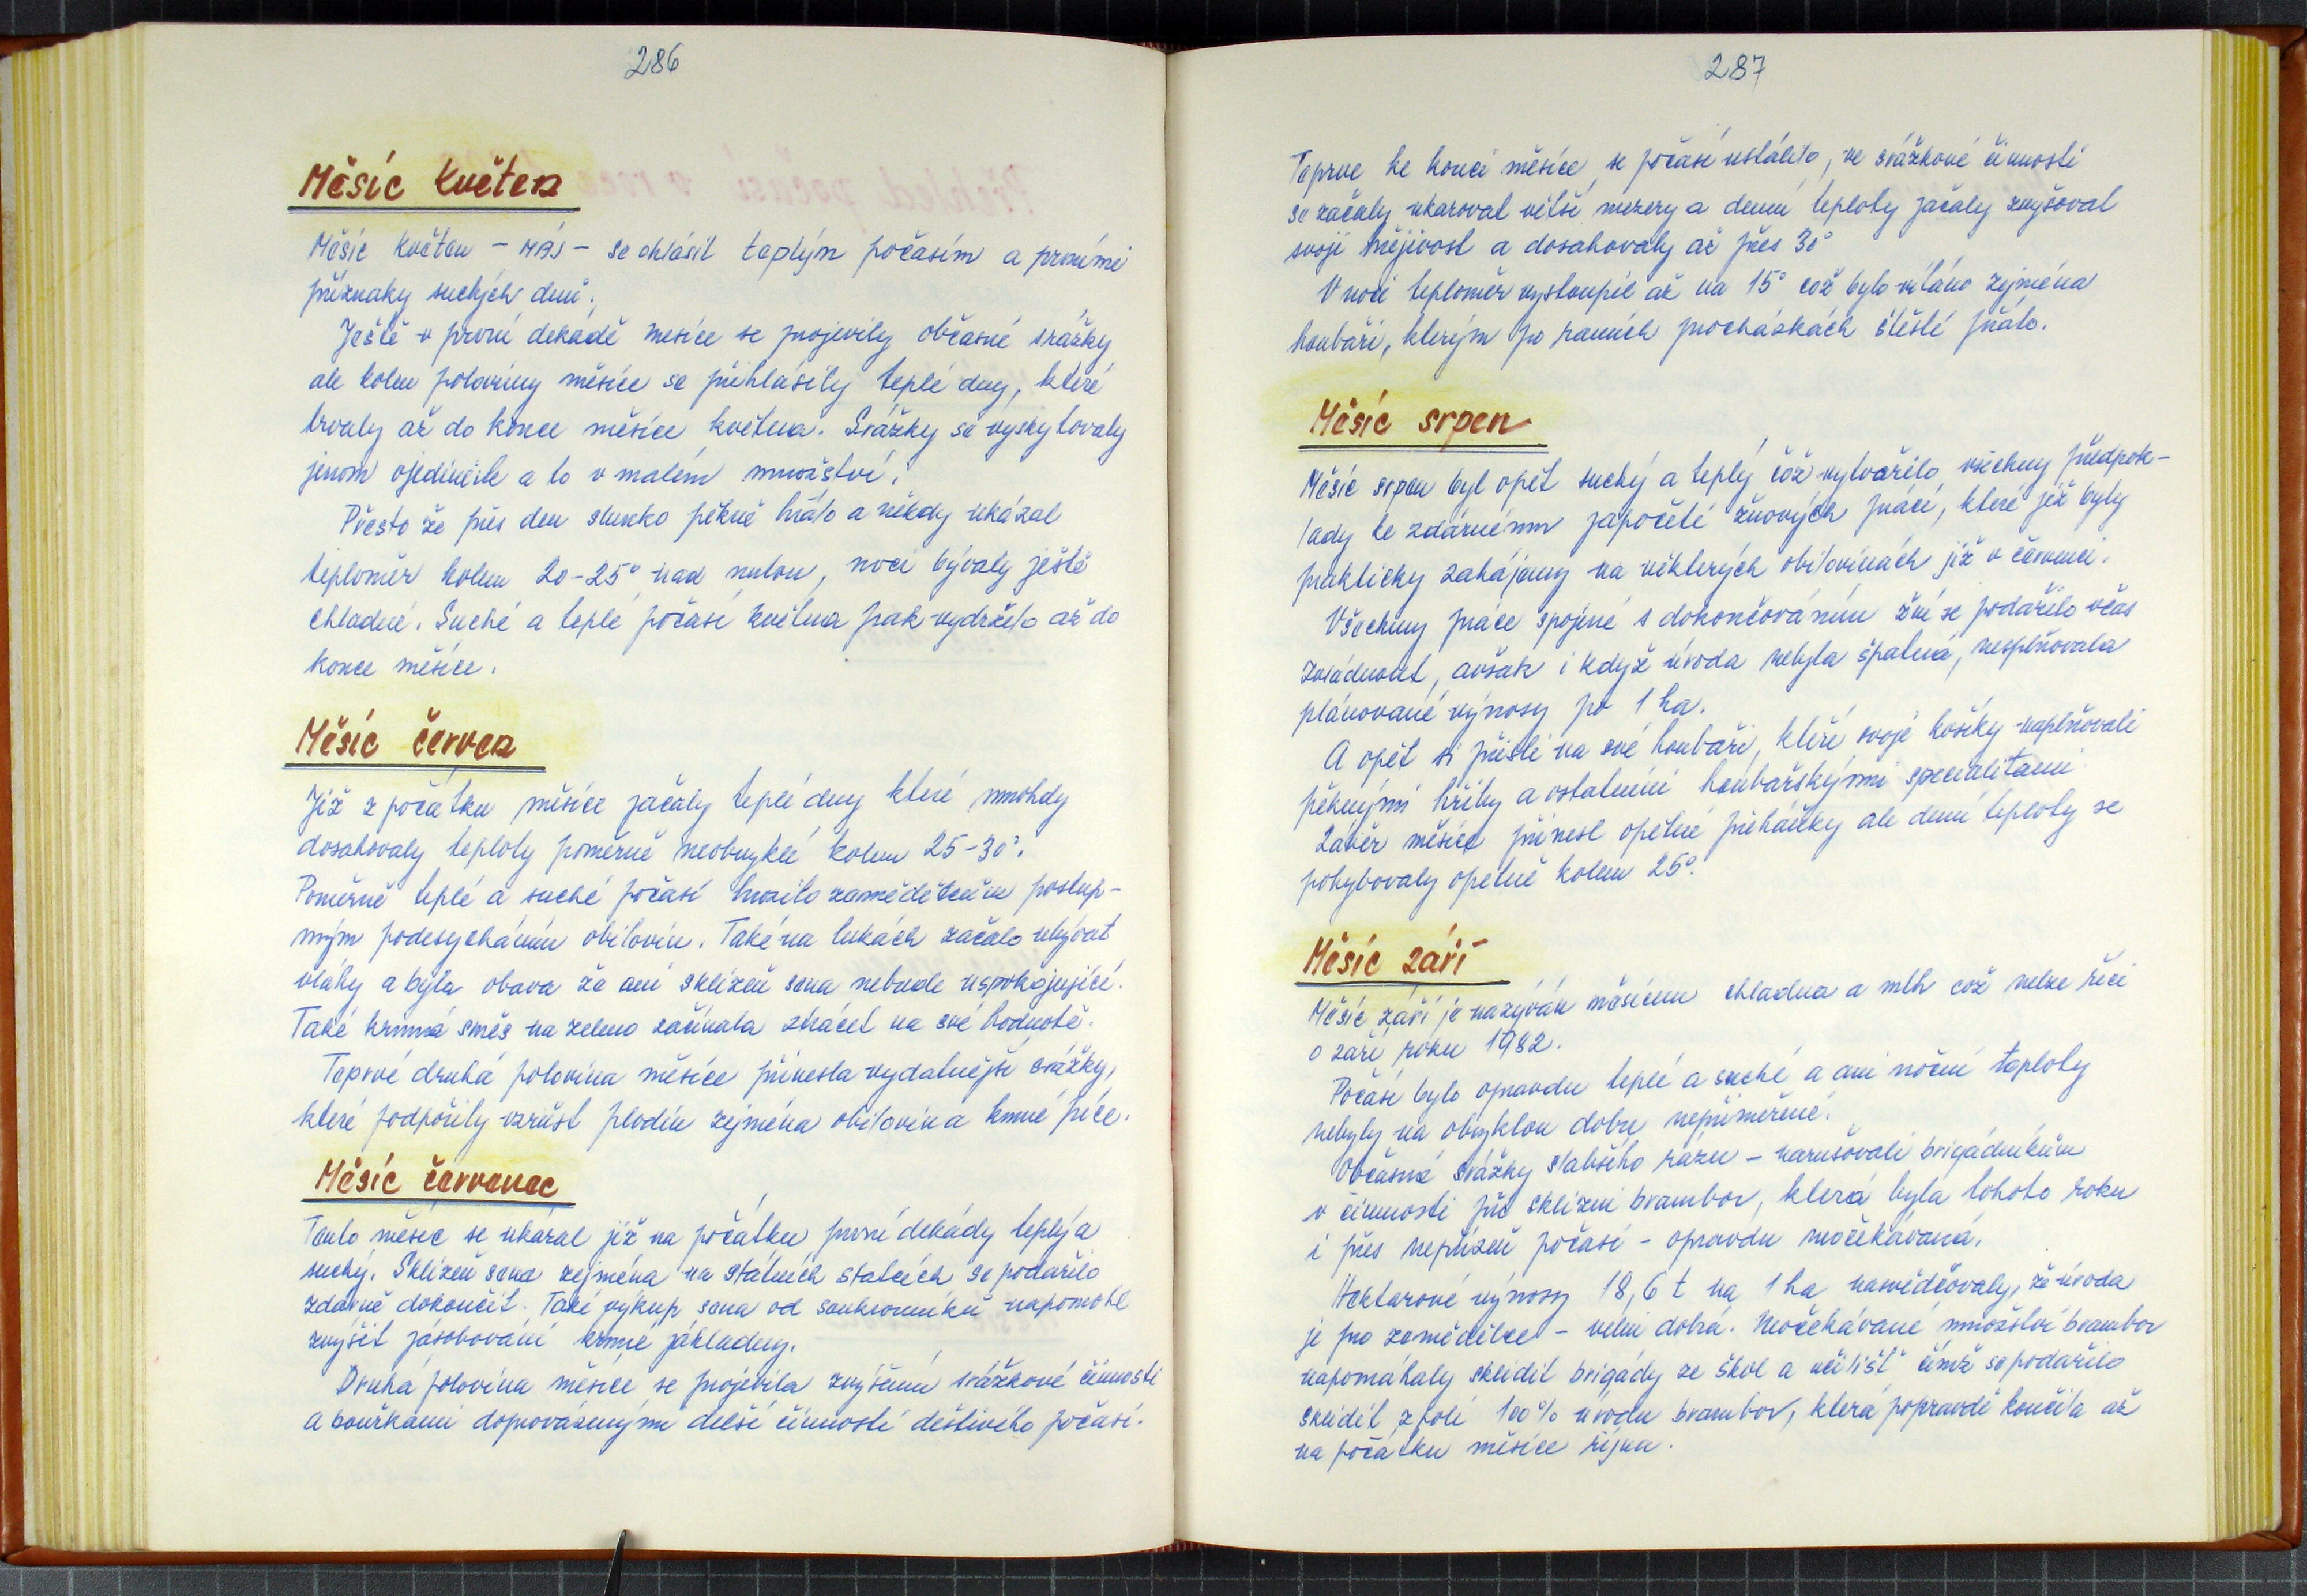 286
Měsíc květen
Měsíc květen - MÁJ - se ohlásil teplým počasím a prvními
příznaky suchých dnů.
Ještě v první dekádě mesíce se projevily občasné srážky
ale kolem poloviny měsíce se přihlásily teplé dny, které
trvaly až do konce měsíce května. Srážky se vyskytovaly
jenom ojediněle a to v malém množství.
Přesto že přes den slunko pěkně hřálo a někdy ukázal
teploměr kolem 20-25° nad nulou, noci bývaly ještě
chladné. Suché a teplé počasí května pak vydrželo až do
konce měsíce.
Měsíc červen
Již z počátku měsíce začaly teplé dny které mnohdy
dosahovaly teploty poměrně neobvyklé kolem 25-30°.
Poměrně teplé a suché počasí hrozilo zemědělcům postup-
ným podesycháním obilovin. Také na lukách začalo ubývat
vláhy a byla obava že ani sklizeň sena nebude uspokojující.
Také krmná směs na zeleno začínala ztrácet na své hodnotě.
Teprvé druhá polovina měsíce přinesla vydatnější srážky,
které podpořily vzrůst plodin zejména obilovin a krmné píce.
Měsíc červenec
Tento měsíc se ukázal již na počátku první dekády teplý a
suchý. Sklizeň sena zejména na státních statcích se podařilo
zdárně dokončit. Také výkup sena od soukromníků napomohl
zvýšit zásobování krmné základny.
Druhá polovina měsíce se projevila zvýšenou srážkové činnosti
a bouřkami doprovázenými delší činností deštivého počasí.
287
Teprve ke konci měsíce se počasí ustálilo, ve srážkové činnosti
se začaly ukazovat větší mezery a denní teploty začaly zvyšovat
svojí hřejivost a dosahovaly až přes 30°
V noci teploměr vystoupil až na 15° což bylo vítáno zejména
houbaři, kterým po ranních procházkách štěstí přálo.
Měsíc srpen
Měsíc srpen byl opět suchý a teplý což vytvořilo všechny předpok-
lady ke zdárnému započetí žňových prací, které již byly
prakticky zahájeny na některých obilovinách již v červenci.
Všechny práce spojené s dokončováním žní se podařilo včas
zvládnout, avšak i když úroda nebyla špatná, nesplňovala
plánované výnosy po 1 ha.
A opět si přišli na své houbaři, kteří svoje košíky naplňovali
pěknými hřiby a ostatními houbařskými specialitami
Závěr měsíce přinesl opětné přeháňky ale denní teploty se
pohybovaly opětně kolem 25°.
Měsíc září
Měsíc září je nazýván měsícem chladna a mlh což nelze říci
o září roku 1982.
Počasí bylo opravdu teplé a suché a ani noční teploty
nebyly na obvyklou dobu nepřiměřené.
Občasné srážky slabšího rázu - narušovali brigádníkům
v činnosti při sklizni brambor, která byla tohoto roku
i přes nepřízeň počasí - opravdu neočekávaná.
Hektarové výnosy 18,6 t na 1 ha nasvědčovaly, že úroda
je pro zemědělce - velmi dobrá. Neočekávané množství brambor
napomáhaly sklidit brigády ze škol a učilišť čímž se podařilo
sklidit z polí 100% úrodu brambor, která popravdě končila až
na počátku měsíce října.